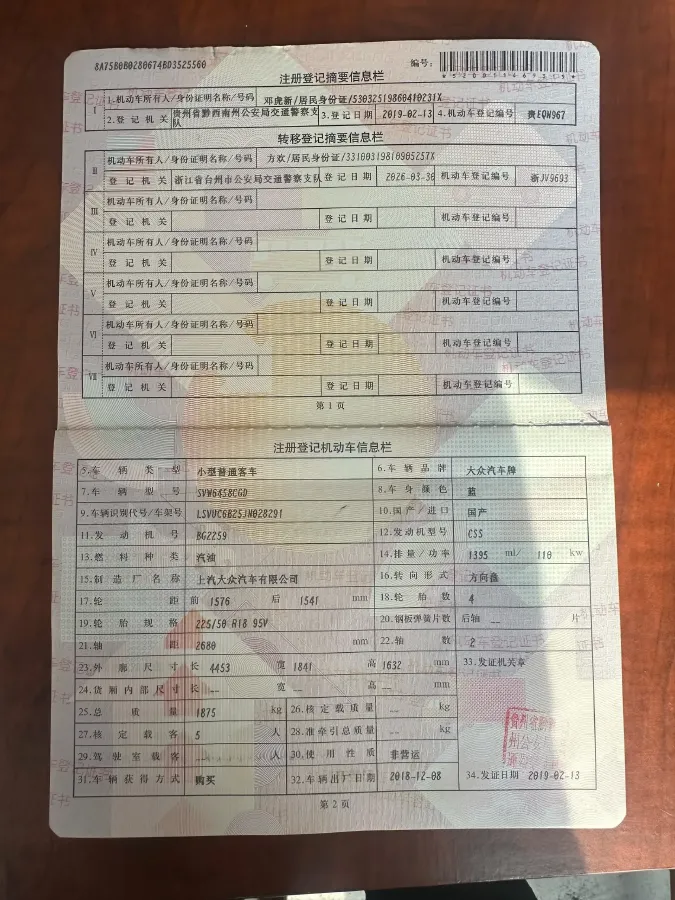 8A75B0B0280674BD3525560 编号：
*520011469335*
注册登记摘要信息栏
Ⅰ 1.机动车所有人/身份证明名称/号码 邓虎新/居民身份证/53032519860410231X
2.登记机关 贵州省黔西南州公安局交通警察支队 3.登记日期 2019-02-13 4.机动车登记编号 贵EQW967
转移登记摘要信息栏
Ⅱ 机动车所有人/身份证明名称/号码 方欢/居民身份证/33100319810905257X
登记机关 浙江省台州市公安局交通警察支队 登记日期 2026-03-30 机动车登记编号 浙JV9693
Ⅲ 机动车所有人/身份证明名称/号码
登记机关 登记日期 机动车登记编号
Ⅳ 机动车所有人/身份证明名称/号码
登记机关 登记日期 机动车登记编号
Ⅴ 机动车所有人/身份证明名称/号码
登记机关 登记日期 机动车登记编号
Ⅵ 机动车所有人/身份证明名称/号码
登记机关 登记日期 机动车登记编号
Ⅶ 机动车所有人/身份证明名称/号码
登记机关 登记日期 机动车登记编号
第1页
注册登记机动车信息栏
5.车辆类型 小型普通客车 6.车辆品牌 大众汽车牌
7.车辆型号 SVW6458CGD 8.车身颜色 蓝
9.车辆识别代号/车架号 LSVUC6B253N028291 10.国产/进口 国产
11.发动机号 BG2259 12.发动机型号 CSS
13.燃料种类 汽油 14.排量/功率 1395 ml/ 110 kw
15.制造厂名称 上汽大众汽车有限公司 16.转向形式 方向盘
17.轮距 前 1576 后 1541 mm 18.轮胎数 4
19.轮胎规格 225/50 R18 95V 20.钢板弹簧片数 后轴 -- 片
21.轴距 2680 mm 22.轴数 2
23.外廓尺寸 长 4453 宽 1841 高 1632 mm 33.发证机关章
24.货厢内部尺寸 长 -- 宽 -- 高 -- mm
25.总质量 1875 kg 26.核定载质量 -- kg
27.核定载客 5 人 28.准牵引总质量 -- kg
29.驾驶室载客 -- 人 30.使用性质 非营运
31.车辆获得方式 购买 32.车辆出厂日期 2018-12-08 34.发证日期 2019-02-13
第2页